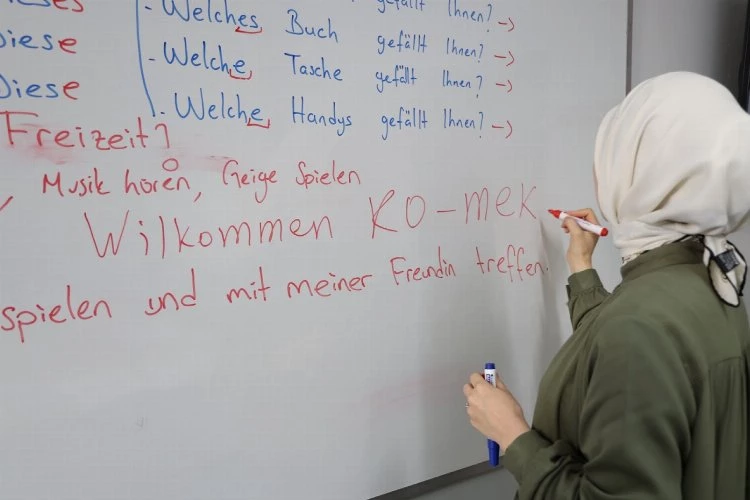 gefällt Ihnen? →
- Welches Buch gefällt Ihnen? →
Diese - Welche Tasche gefällt Ihnen? →
Diese - Welche Handys gefällt Ihnen? →
Freizeit?
Musik hören, Geige Spielen
Wilkommen KO-meK
spielen und mit meiner Freundin treffen.